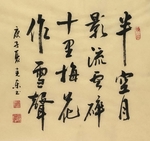 半空月
影流雲碎
十里梅花
作雪聲
庚子夏